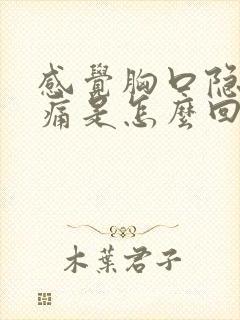 感覺胸口隐
痛是怎麼回
木葉君子